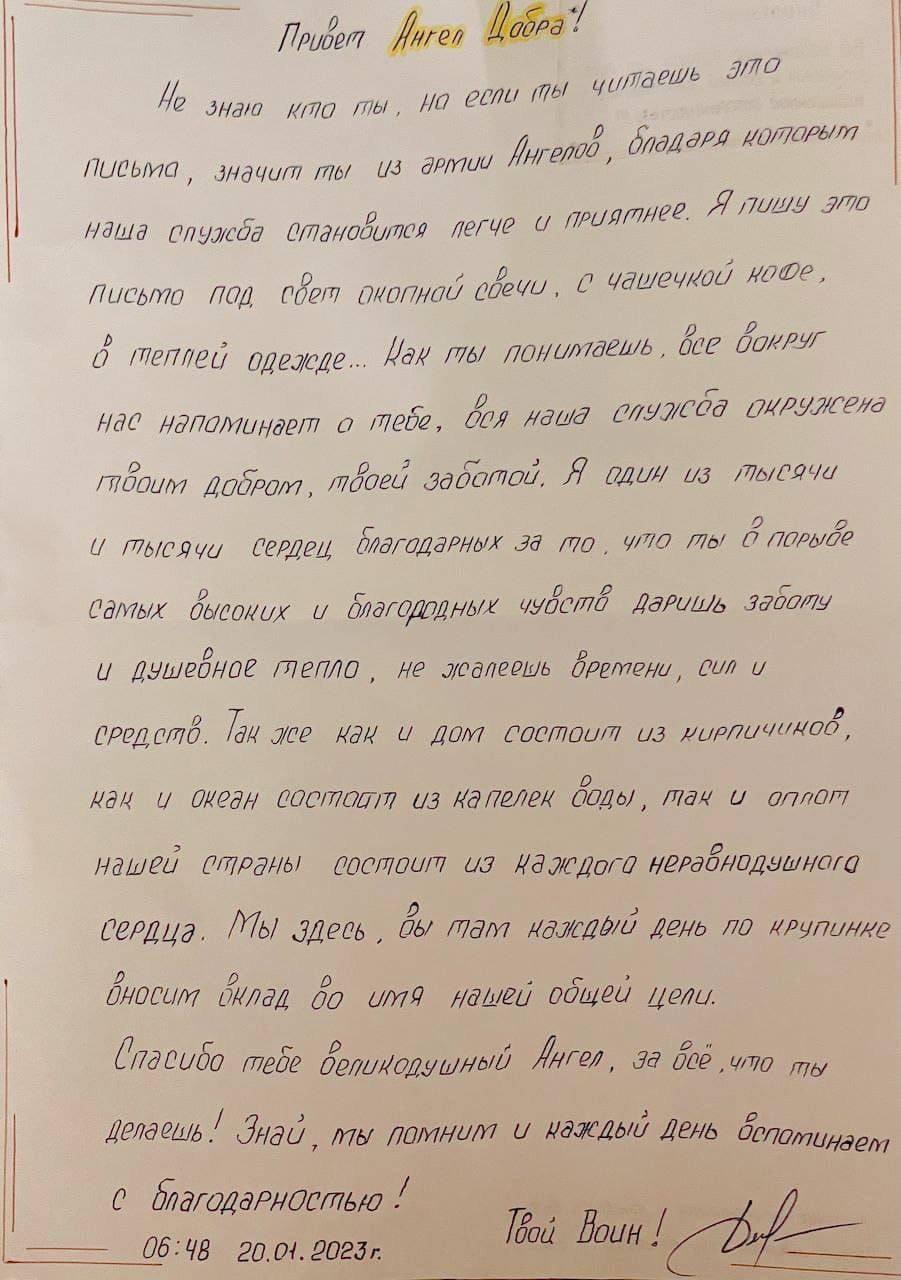 Привет Ангел Добра*!
Не знаю кто ты, но если ты читаешь это
письмо, значит ты из армии Ангелов, бладаря которым
наша служба становится легче и приятнее. Я пишу это
письмо под свет окопной свечи, с чашечкой кофе,
в теплей одежде... Как ты понимаешь, все вокруг
нас напоминает о тебе, вся наша служба окружена
твоим добром, твоей заботой. Я один из тысячи
и тысячи сердец благодарных за то, что ты в порыве
самых высоких и благородных чувств даришь заботу
и душевное тепло, не жалеешь времени, сил и
средств. Так же как и дом состоит из кирпичиков,
как и океан состоит из капелек воды, так и оплот
нашей страны состоит из каждого неравнодушного
сердца. Мы здесь, вы там каждый день по крупинке
вносим вклад во имя нашей общей цели.
Спасибо тебе великодушный Ангел, за всё, что ты
делаешь! Знай, мы помним и каждый день вспоминаем
с благодарностью!
Твой Воин!
06:48 20.01.2023г.